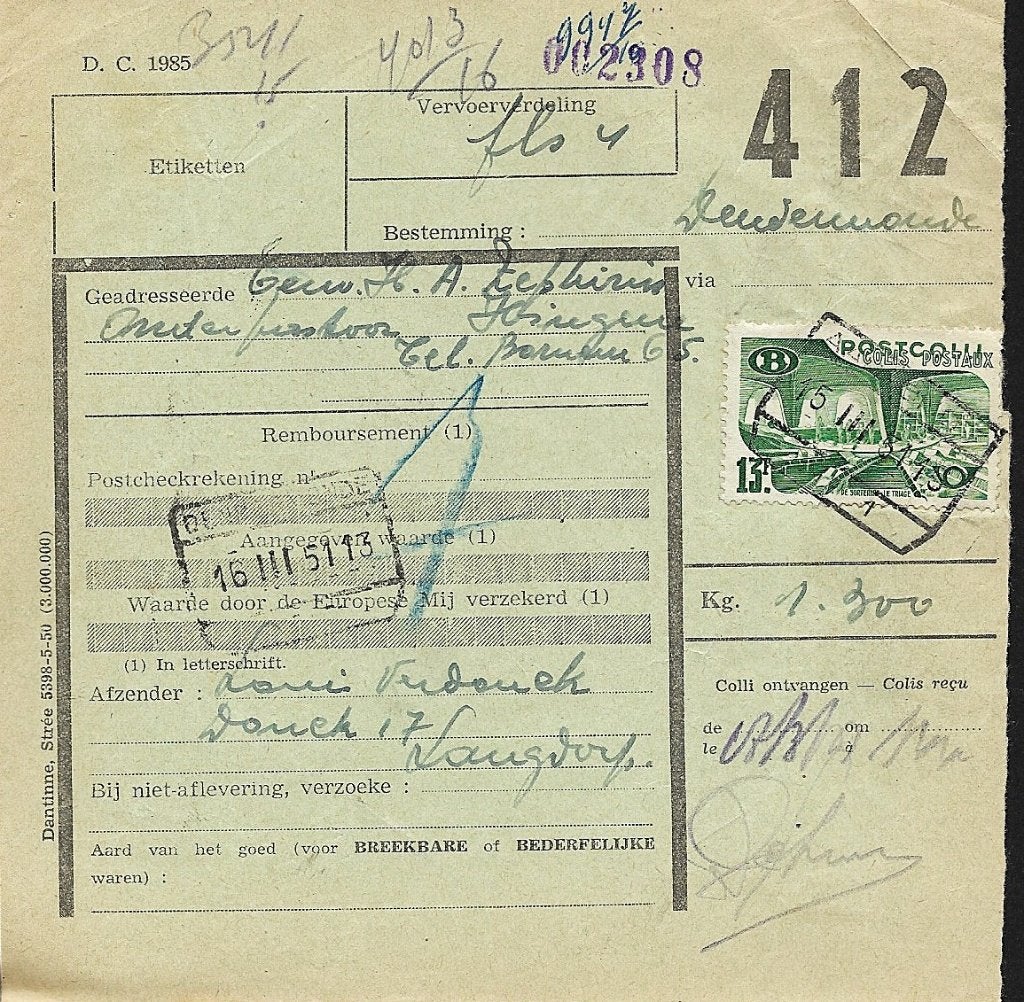 D. C. 1985
002308
412
Vervoerverdeling
Etiketten
Bestemming : Dendermonde
via
Geadresseerde Gew. H. A. Zephirin
Hingene
Tel. Bornem 65.
POSTCOLLI
COLIS POSTAUX
B
13F
DE SORTEERING LE TRIAGE
15 III 51 13
1
Remboursement (1)
Postcheckrekening nr
Aangegeven waarde (1)
16 III 51 13
Waarde door de Europese Mij verzekerd (1)
(1) In letterschrift.
Kg. 1.300
Afzender : Louis Verdonck
Donck 17
Langdorp.
Colli ontvangen — Colis reçu
de om
le à
Bij niet-aflevering, verzoeke :
Aard van het goed (voor BREEKBARE of BEDERFELIJKE
waren) :
Dantinne, Strée 5398-5-50 (3.000.000)